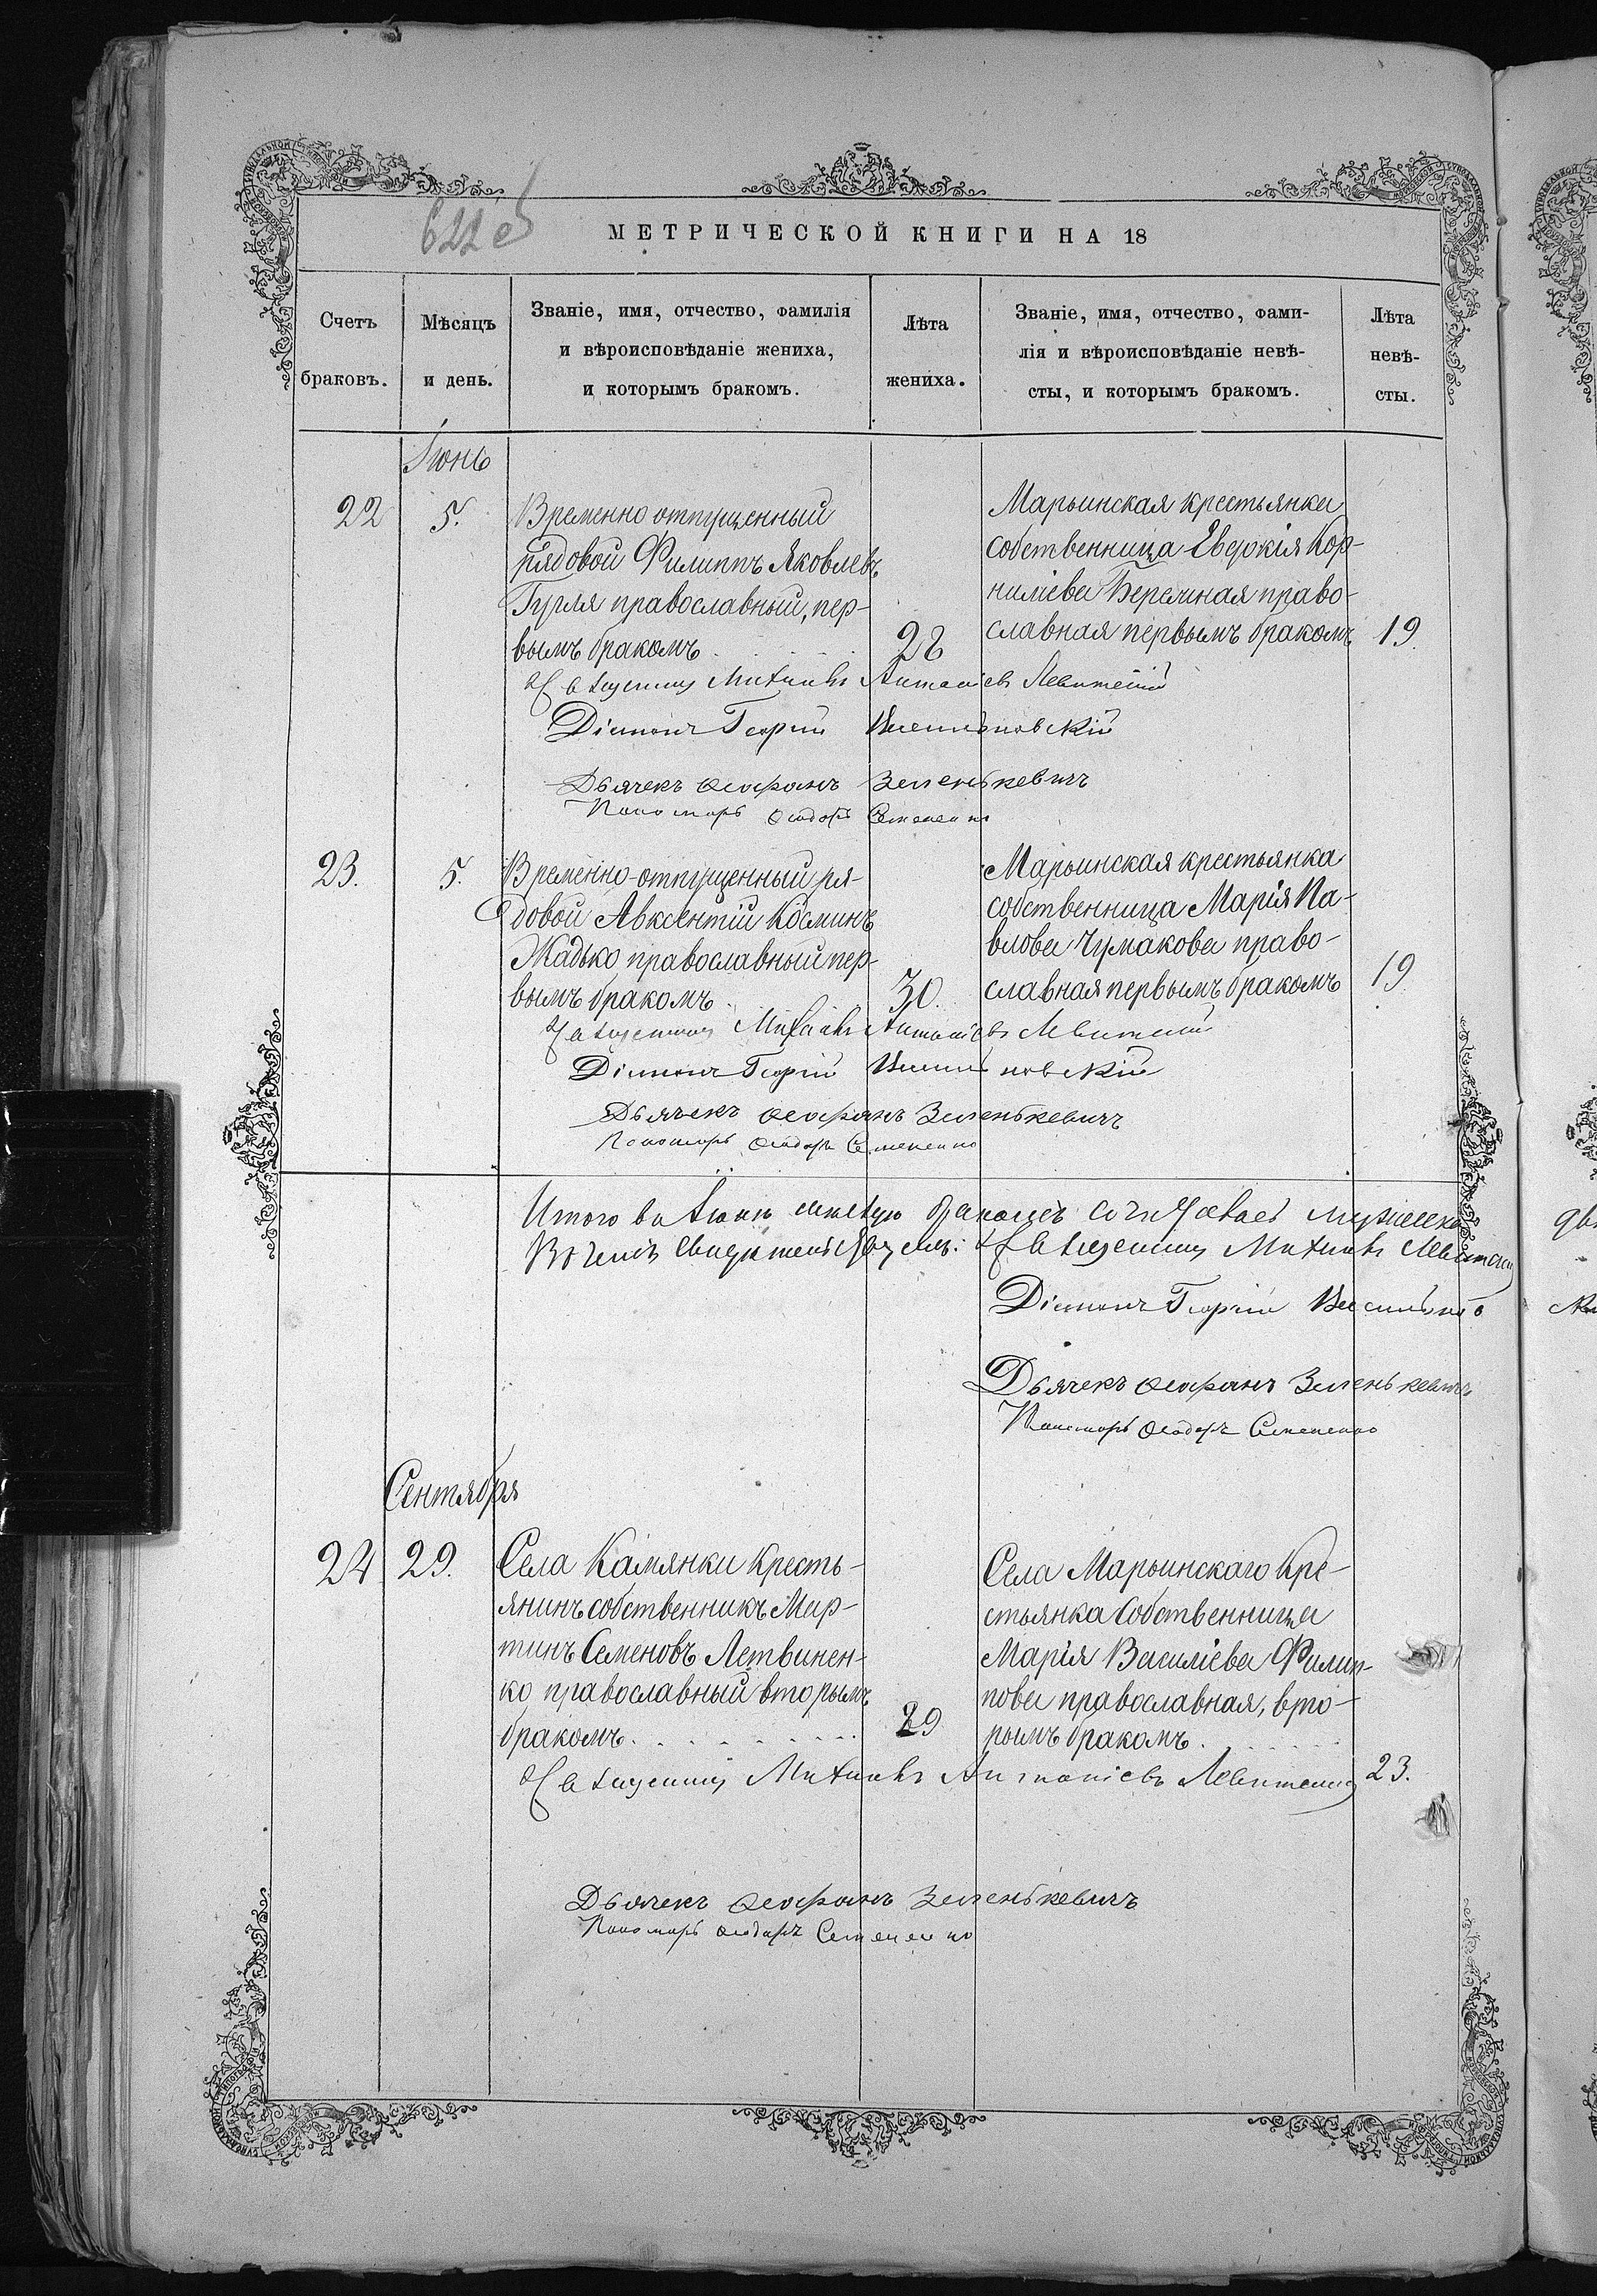 МЕТРИЧЕСКОЙ КНИГИ НА 18
Счетъ браковъ.
Мѣсяцъ и день.
Званіе, имя, отчество, фамилія
и вѣроисповѣданіе жениха,
и которымъ бракомъ.
Лѣта жениха.
Званіе, имя, отчество, фами-
лія и вѣроисповѣданіе невѣ-
сты, и которымъ бракомъ.
Лѣта невѣ-
сты.
Іюнь
22
5.
Временно отпущенный
рядовой Филиппъ Яковлевъ
православный, пер-
вымъ бракомъ
28
Марьинская крестьянка
собственница Евдокія Кор-
ниліева право-
славная первымъ бракомъ
19.
Священникъ Михаилъ Антоніевъ Левитскій
Діаконъ Георгій
Дьячекъ Ѳеофанъ Зеленькевичъ
Пономарь Ѳеодоръ Семененко
23.
5.
Временно-отпущенный ря-
довой Авксентій Косминъ
Жадько православный пер-
вымъ бракомъ
30.
Марьинская крестьянка
собственница Марія Па-
влова Чумакова право-
славная первымъ бракомъ
19
Священникъ Михаилъ Антоніевъ Левитскій
Діаконъ Георгій
Дьячекъ Ѳеофанъ Зеленькевичъ
Пономарь Ѳеодоръ Семененко
Итого въ Іюнѣ мѣсяцѣ бракомъ
Въ чемъ Священникъ Михаилъ Левитскій
Діаконъ Георгій
Дьячекъ Ѳеофанъ Зеленькевичъ
Пономарь Ѳеодоръ Семененко
Сентября
24
29.
Села Камянки кресть-
янинъ собственникъ Мар-
тинъ Семеновъ Летвинен-
ко православный вторымъ
бракомъ
29
Села Марьинскаго кре-
стьянка собственница
Марія Василіева Филип-
пова православная, вто-
рымъ бракомъ
23.
Священникъ Михаилъ Антоніевъ Левитскій
Дьячекъ Ѳеофанъ Зеленькевичъ
Пономарь Ѳеодоръ Семененко